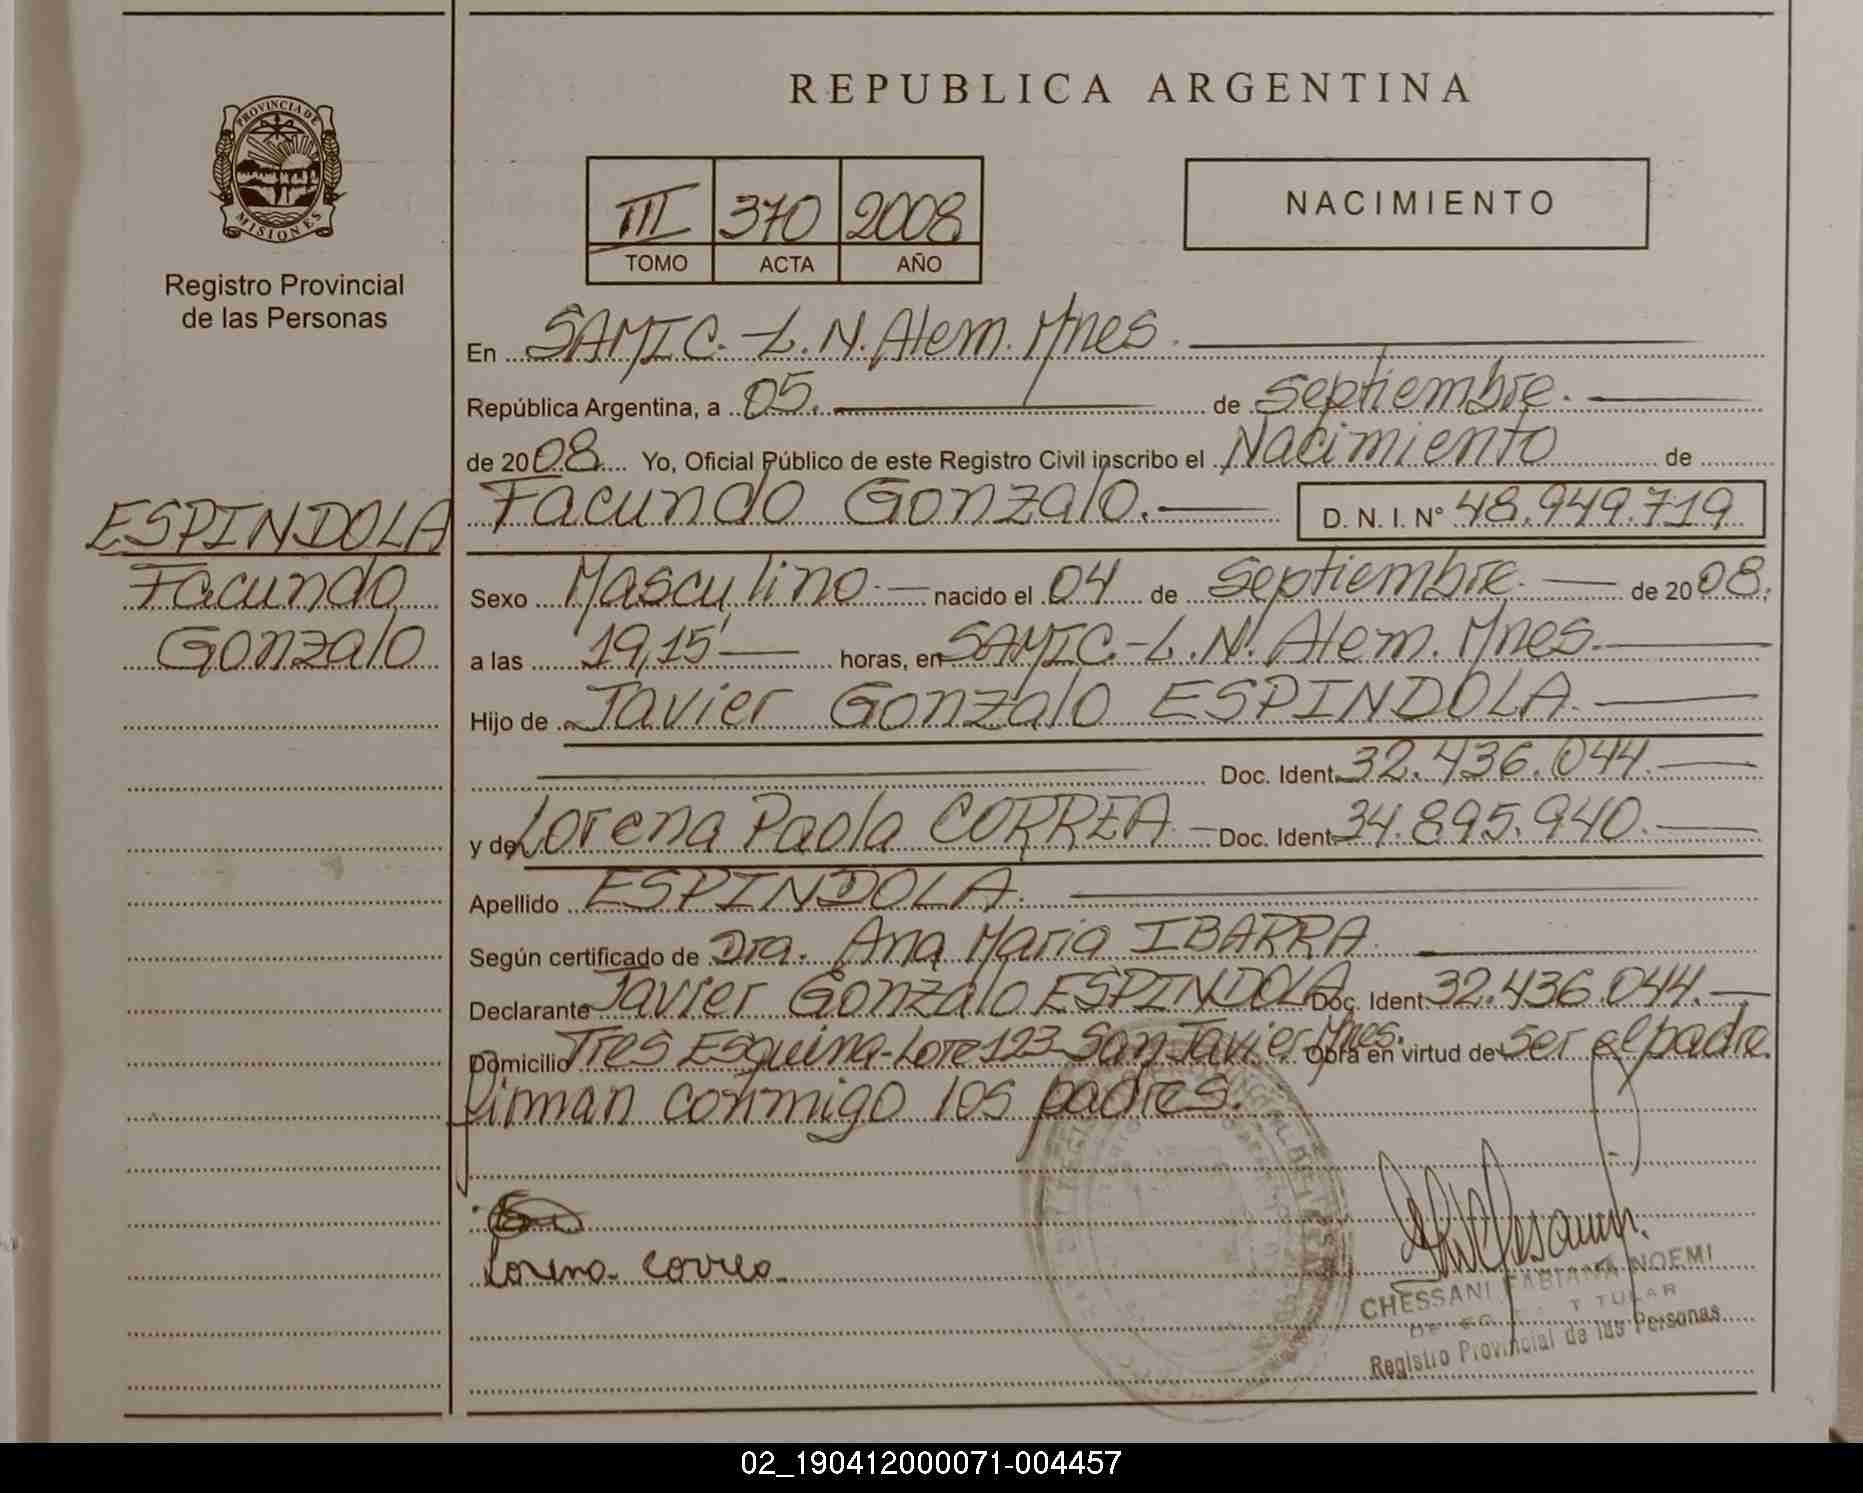 PROVINCIA DE
MISIONES
Registro Provincial
de las Personas
ESPINDOLA
Facundo
Gonzalo
REPUBLICA ARGENTINA
III 370 2008
TOMO ACTA AÑO
NACIMIENTO
En SAMIC.-L.N.Alem.Mnes.
República Argentina, a 05. de septiembre.
de 2008. Yo, Oficial Público de este Registro Civil inscribo el Nacimiento de
Facundo Gonzalo. D. N. I. Nº 48.949.719
Sexo Masculino.- nacido el 04 de septiembre. de 2008.
a las 19,15' horas, en SAMIC.-L.N.Alem.Mnes.
Hijo de Javier Gonzalo ESPINDOLA.
Doc. Ident. 32.436.044.
y de Lorena Paola CORREA. Doc. Ident. 34.895.940.
Apellido ESPINDOLA.
Según certificado de Dra. Ana Maria IBARRA.
Declarante Javier Gonzalo ESPINDOLA Doc. Ident. 32.436.044.
Domicilio Tres Esquina-Lote 123 San Javier Mnes. Obra en virtud de ser el padre.
Firman conmigo los padres.
Lorena Correa
CHESSANI FABIANA NOEMI
TITULAR
Registro Provincial de las Personas
02_190412000071-004457